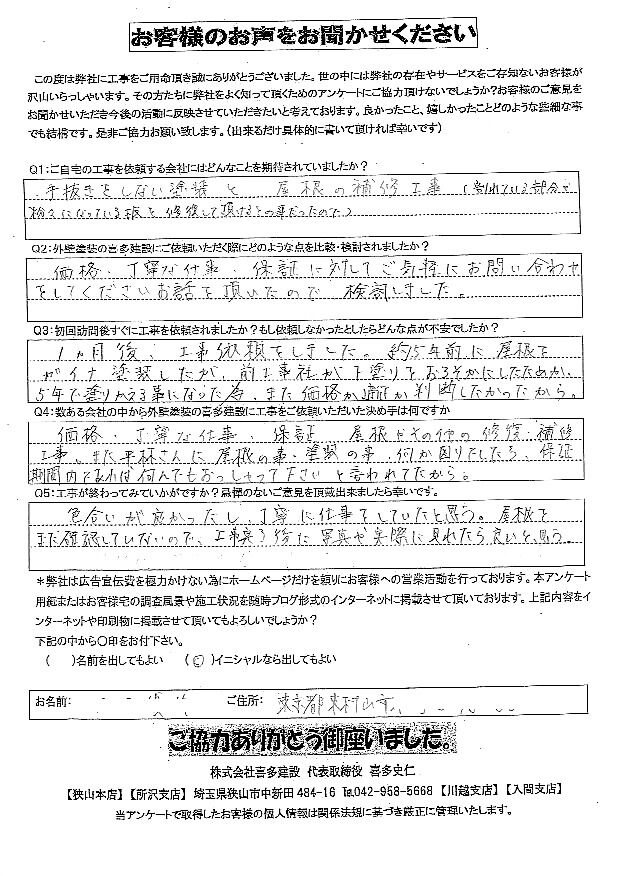 お客様のお声をお聞かせください
この度は弊社に工事をご用命頂き誠にありがとうございました。世の中には弊社の存在やサービスをご存知ないお客様が
沢山いらっしゃいます。その方たちに弊社をよく知って頂くためのアンケートにご協力頂けないでしょうか?お客様のご意見を
お聞かせいただき今後の活動に反映させていただきたいと考えております。良かったこと、嬉しかったことどのような些細な事
でも結構です。是非ご協力お願い致します。(出来るだけ具体的に書いて頂ければ幸いです)
Q1:ご自宅の工事を依頼する会社にはどんなことを期待されていましたか?
手抜きをしない塗装と 屋根の補修工事 (割れている部分や
粉々になっている板を修復して頂けるとの事だったので)
Q2:外壁塗装の喜多建設にご依頼いただく際にどのような点を比較・検討されましたか?
価格・丁寧な仕事・保証に対してご気軽にお問い合わせ
をしてくださいお話を頂いたので 検討しました。
Q3:初回訪問後すぐに工事を依頼されましたか?もし依頼しなかったとしたらどんな点が不安でしたか?
1ヵ月後、工事依頼をしました。約5年前に屋根を
ガイナ塗装したが、前工事社が下塗りをおろそかにしたためか、
5年で塗りかえる事になった為、また価格が適正か判断したかったから。
Q4:数ある会社の中から外壁塗装の喜多建設に工事をご依頼いただいた決め手は何ですか
価格・丁寧な仕事・保証 屋根やその他の修復・補修
工事。また平林さんに屋根の事・塗装の事・何か困りでしたら、保証
期間内であれば何んでもおっしゃって下さいと言われてたから。
Q5:工事が終わってみていかがですか?忌憚のないご意見を頂戴出来ましたら幸いです。
色合いが良かったし、丁寧に仕事をしていたと思う。屋根を
まだ確認していないので、工事完了後に写真や実際に見れたら良いと思う。
*弊社は広告宣伝費を極力かけない為にホームページだけを頼りにお客様への営業活動を行っております。本アンケート
用紙またはお客様宅の調査風景や施工状況を随時ブログ形式のインターネットに掲載させて頂いております。上記内容をイ
ンターネットや印刷物に掲載させて頂いてもよろしいでしょうか?
下記の中から○印をお付下さい。
( )名前を出してもよい (○)イニシャルなら出してもよい
お名前: ご住所: 東京都東村山市
ご協力ありがとう御座いました。
株式会社喜多建設 代表取締役 喜多史仁
【狭山本店】【所沢支店】 埼玉県狭山市中新田484-16 ℡042-958-5668 【川越支店】【入間支店】
当アンケートで取得したお客様の個人情報は関係法規に基づき厳正に管理いたします。